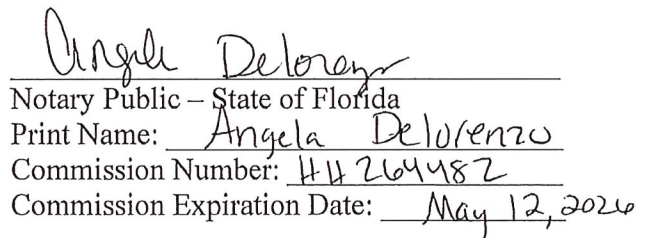 Angela Delorenzo
Notary Public – State of Florida
Print Name: Angela Delorenzo
Commission Number: HH 264482
Commission Expiration Date: May 12, 2026